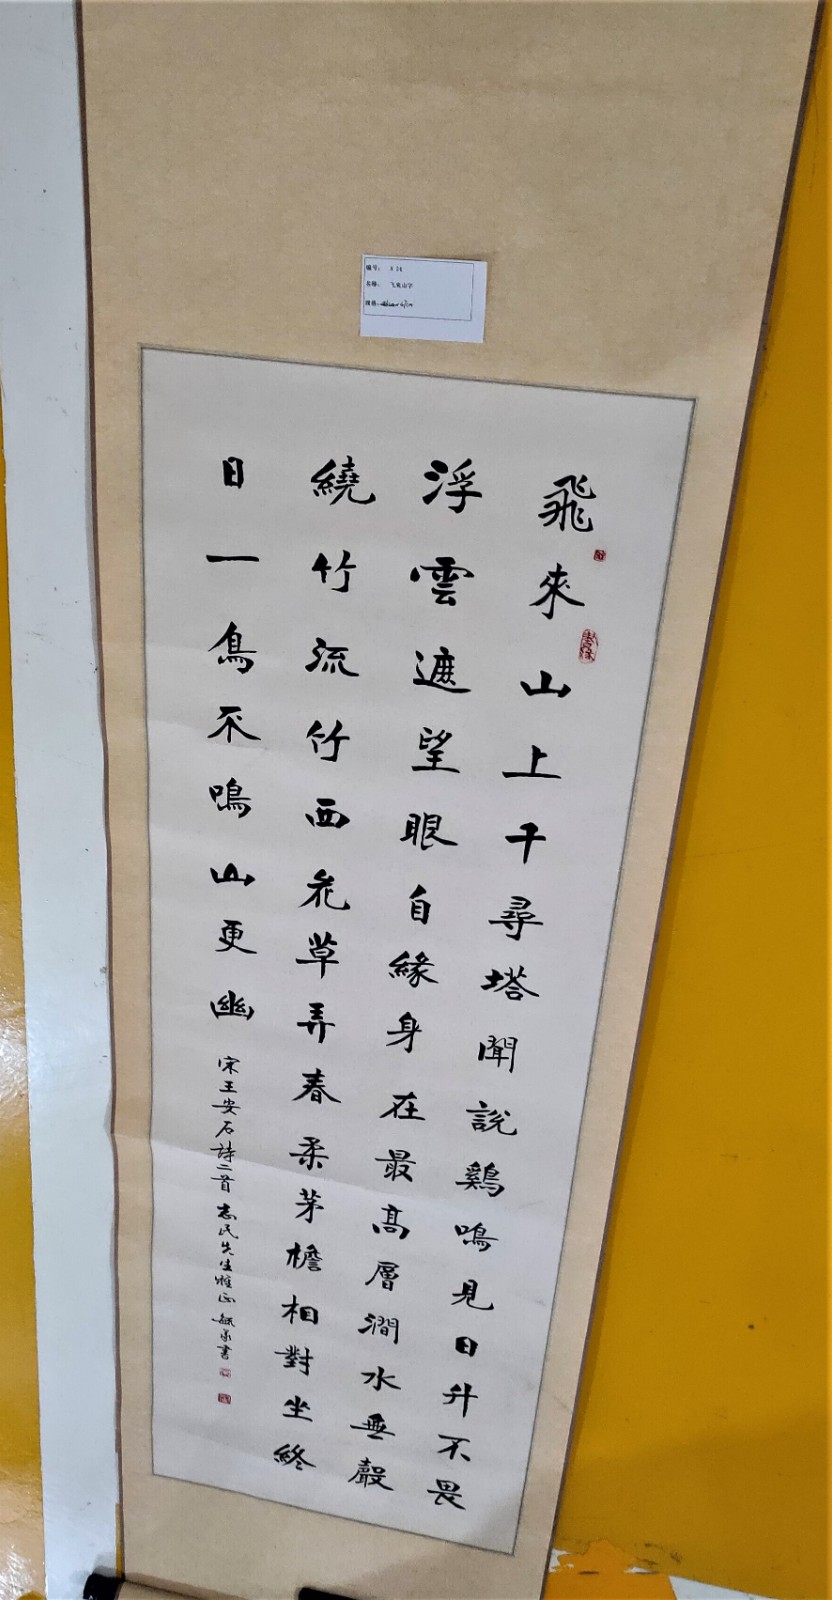 编号： A 24
名称： 飞来山字
规格
飛來山上千尋塔聞說鷄鳴見日升不畏
浮雲遮望眼自緣身在最高層澗水無聲
繞竹流竹西花草弄春柔茅檐相對坐終
日一鳥不鳴山更幽
宋王安石詩二首 志民先生雅正 毓泉書